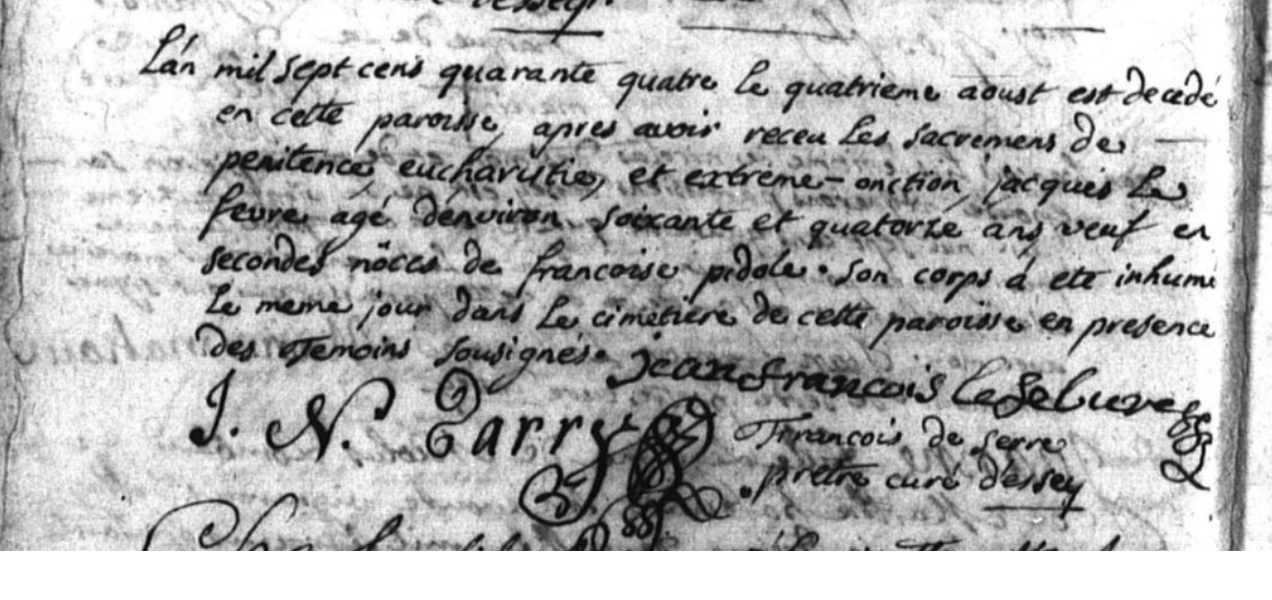 dessey.
Lán mil sept cens quarante quatre le quatrieme aoust est decedé
en cette paroisse, apres avoir receu les sacremens de
penitence eucharistie, et extréme-onction jacques le
fevre agé dénviron soixante et quatorze ans veuf en
secondes nôces de francoise pidole. son corps á eté inhumé
le meme jour dans le cimetiere de cette paroisse en presence
des temoins sousignés. jean francois le febuvre
J. N. Parry
francois de serre
prêtre curé déssey